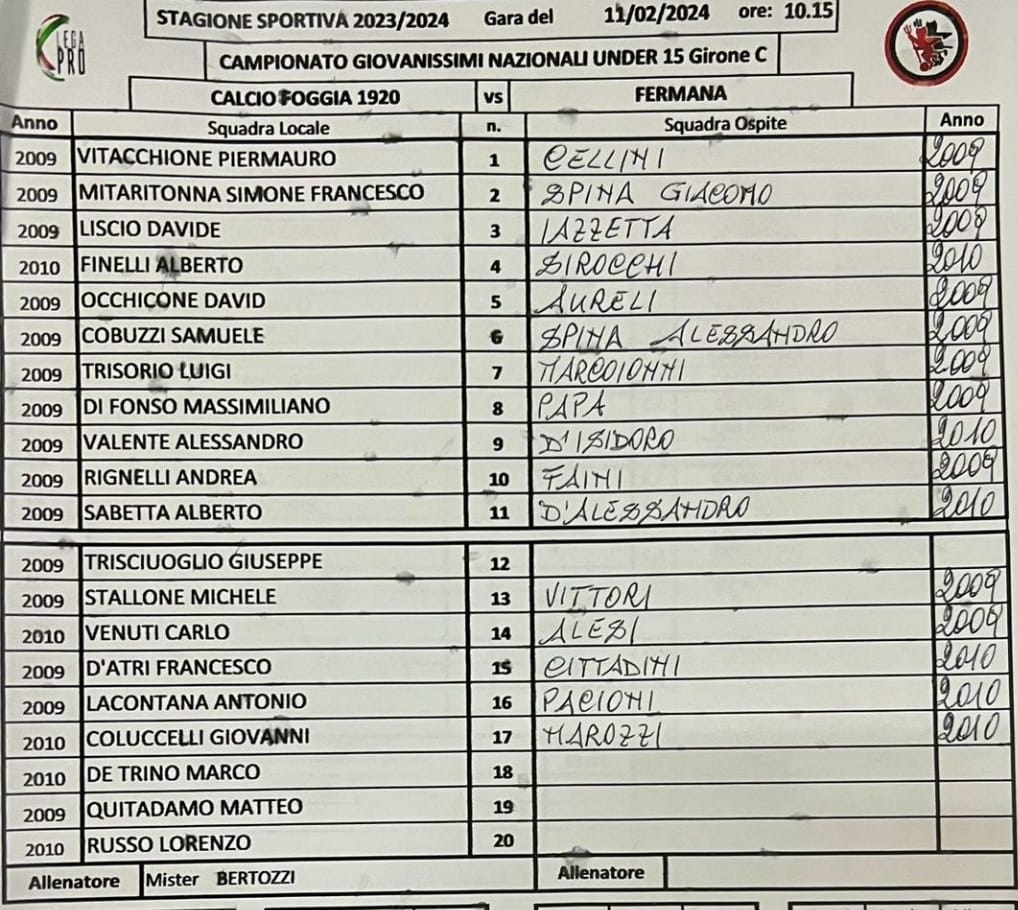 LEGA PRO
STAGIONE SPORTIVA 2023/2024 Gara del 11/02/2024 ore: 10.15
CAMPIONATO GIOVANISSIMI NAZIONALI UNDER 15 Girone C
CALCIO FOGGIA 1920 vs FERMANA
Anno Squadra Locale n. Squadra Ospite Anno
2009 VITACCHIONE PIERMAURO 1 CELLINI 2009
2009 MITARITONNA SIMONE FRANCESCO 2 SPINA GIACOMO 2009
2009 LISCIO DAVIDE 3 IAZZETTA 2009
2010 FINELLI ALBERTO 4 SIROCCHI 2010
2009 OCCHICONE DAVID 5 AURELI 2009
2009 COBUZZI SAMUELE 6 SPINA ALESSANDRO 2009
2009 TRISORIO LUIGI 7 MARCOIONNI 2009
2009 DI FONSO MASSIMILIANO 8 PAPA 2009
2009 VALENTE ALESSANDRO 9 D'ISIDORO 2010
2009 RIGNELLI ANDREA 10 FAINI 2009
2009 SABETTA ALBERTO 11 D'ALESSANDRO 2010
2009 TRISCIUOGLIO GIUSEPPE 12
2009 STALLONE MICHELE 13 VITTORI 2009
2010 VENUTI CARLO 14 ALESI 2009
2009 D'ATRI FRANCESCO 15 CITTADINI 2010
2009 LACONTANA ANTONIO 16 PACIONI 2010
2010 COLUCCELLI GIOVANNI 17 MAROZZI 2010
2010 DE TRINO MARCO 18
2009 QUITADAMO MATTEO 19
2010 RUSSO LORENZO 20
Allenatore Mister BERTOZZI Allenatore